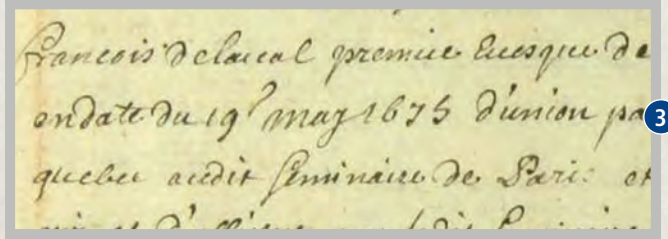 francois Delaual premier Euesque de
en date du 19e may 1675 d'union pa 3
quebec audit seminaire de Paris et